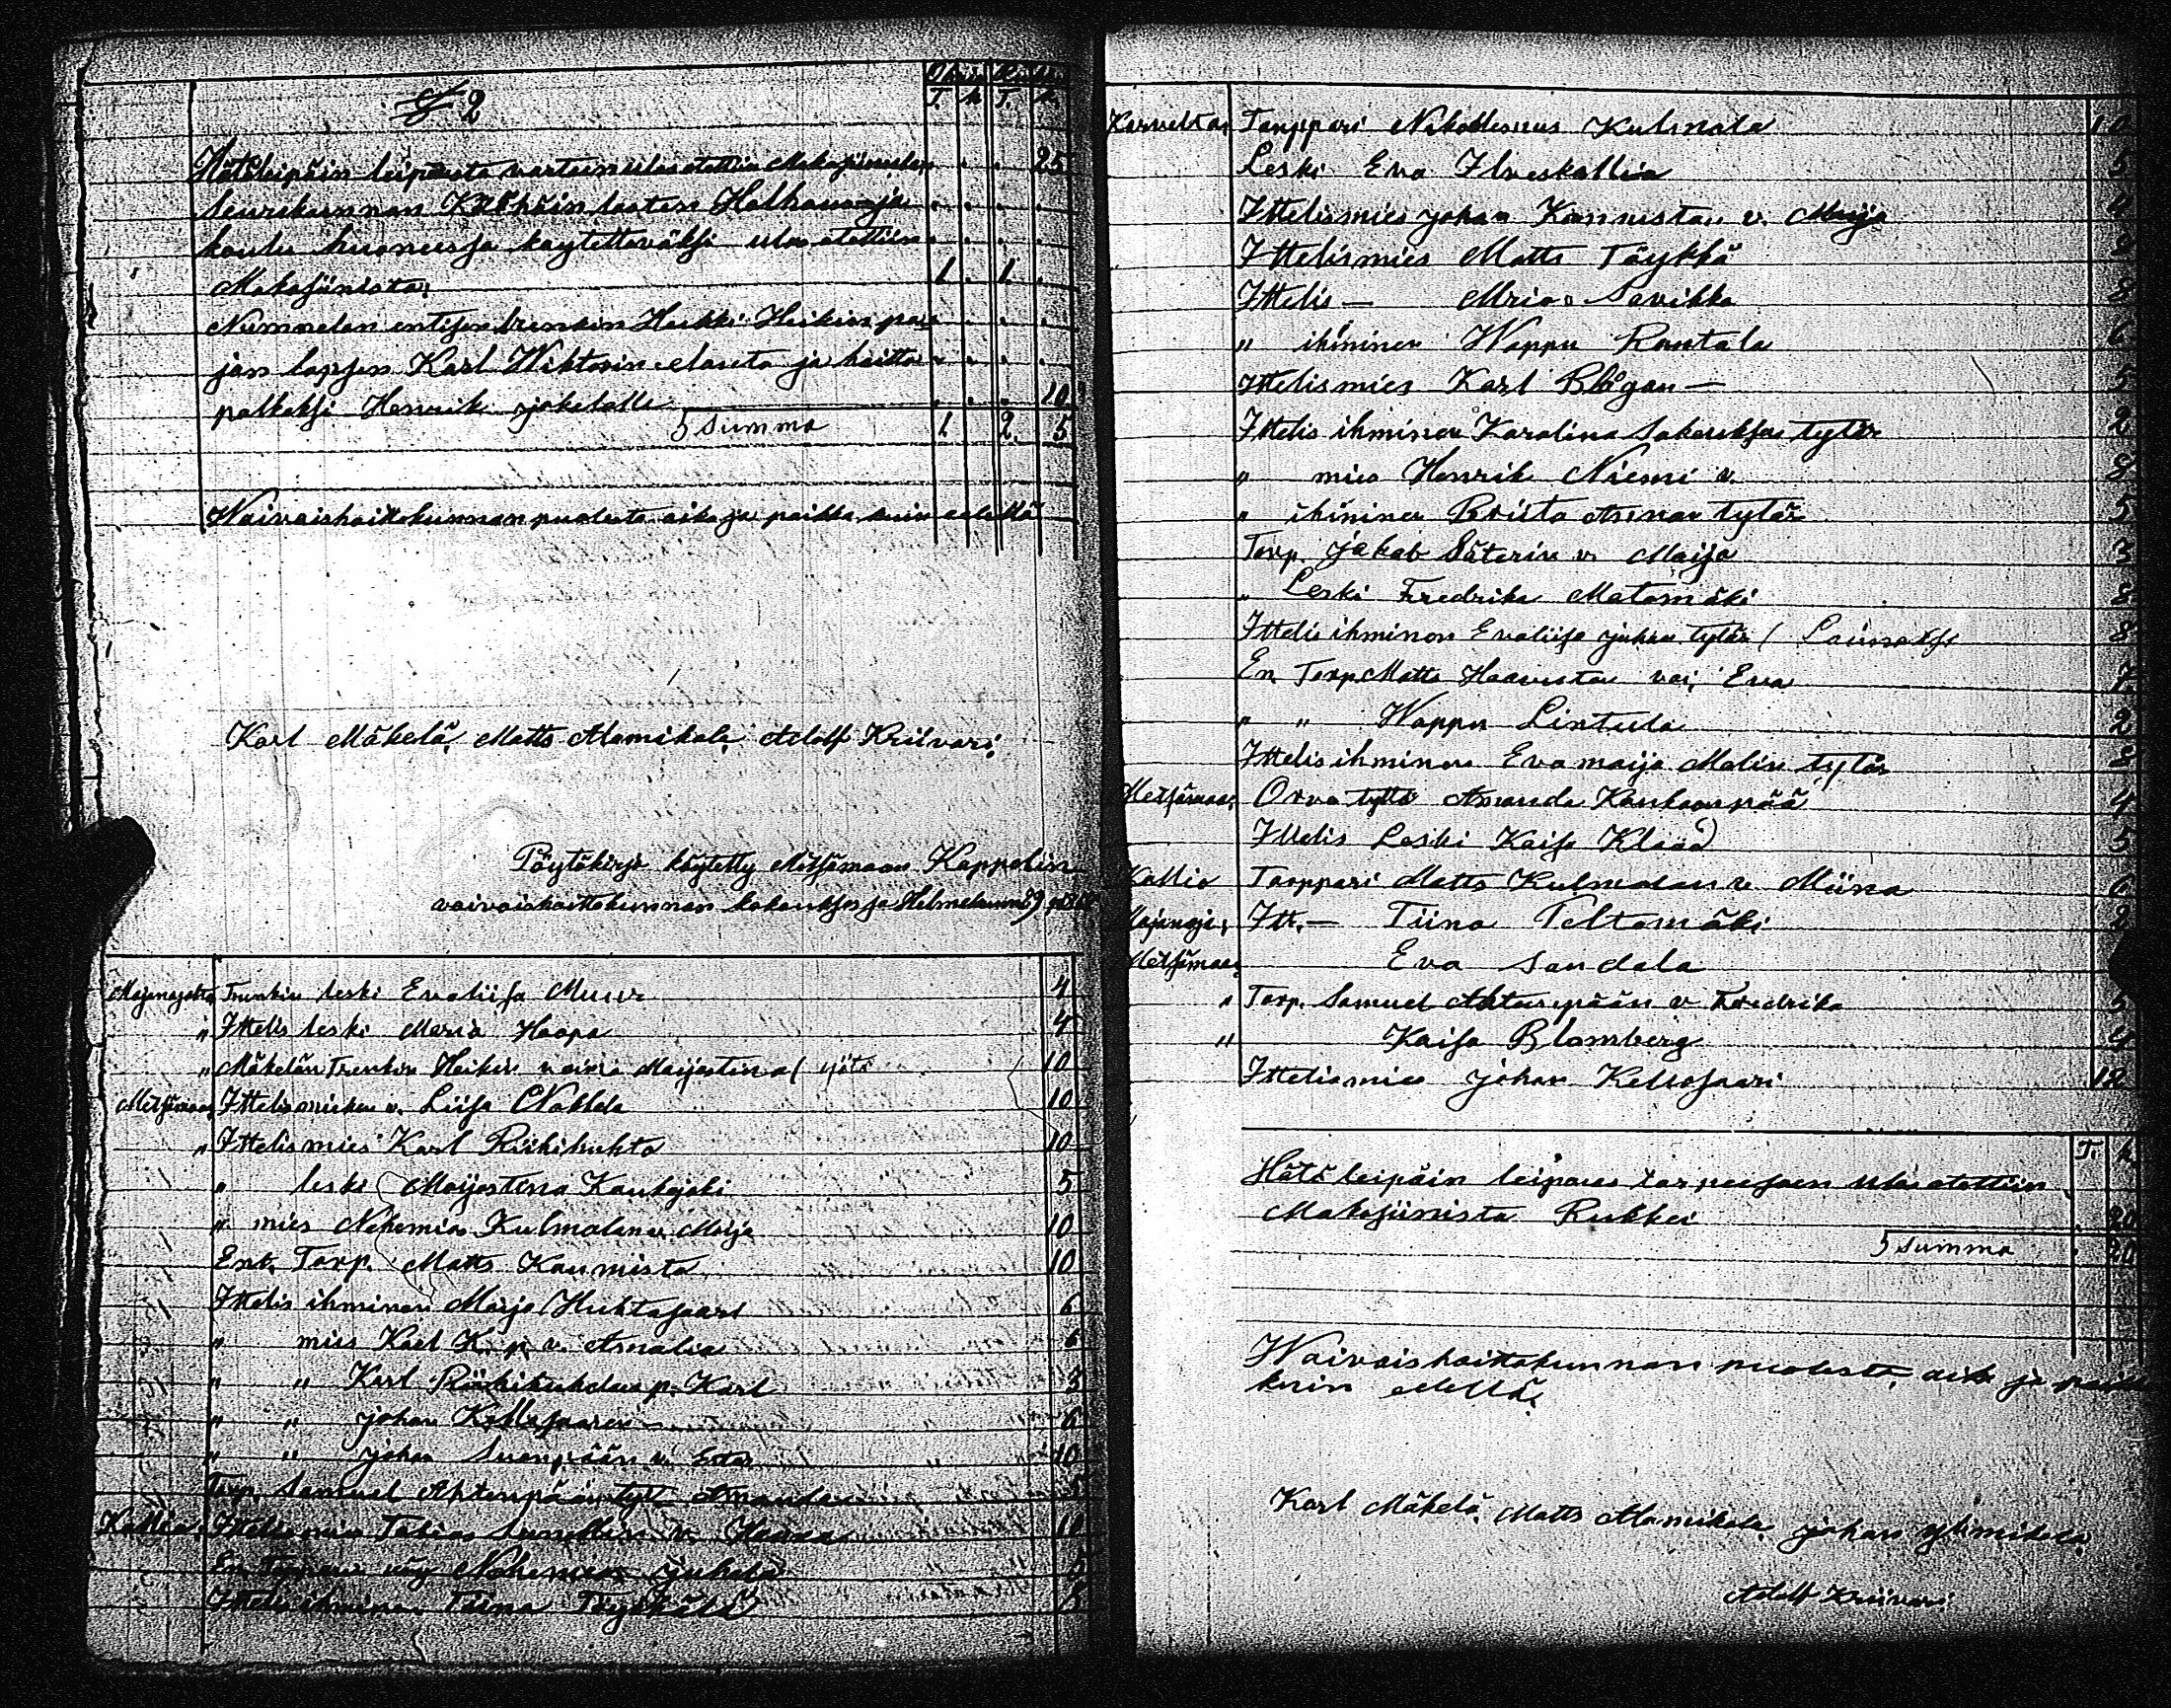 § 2
T. k T. k.
Hätäleipäin leipomista varten ulos otettiin Makasiinista 25
Seurakunnan Köyhäin lasten Holhous ja
koulu huoneessa käytettäväksi ulos otettiin
Makasiinista. 1 . 1 .
Nummelan entisen trenkin Heikki Heikin po
jan lapsen Karl Wiktorin elanto ja hoitto
palkaksi Henrik jokelalle 10
Summa 1 2. 5
Waivaishoitokunnan puolesta aika ja paikka kuin edellä
Karl Mäkelä. Matts Alamikola. Adolf Kriivari.
Pöytäkirja käytetty Metsämaan Kappelin
vaivaishoittokunnan kokouksessa Helmekuun 9
Majanojalta Trenkin leski Evaliisa Muur 4
„ Ittelis leski Maria Haapa 4
„ Mäkelän Trenkin Heikin vaimo Maijastina 10
Metsämaa Ittelismiehen v. Liisa Nokkala 10
„ Ittelismies Karl Riihihuhta 10
„ leski Maijastina Kaukojoki 5
„ mies Nehemia Kulmalan v. Maija 10
Ent. Torp. Matts Kaunista 10
Ittelis ihminen Maija Huhtasaari 6
„ mies Karl K. p. v. Amalia 6
„ „ Karl Riihihuhdan p. Karl 3
„ „ johan Kellosaaren 6
„ „ johan Suonpään v. 10
Torp. Samuel Ahtenpään tyt. Amanda 5
Kallio. Ittelismies Tobias v. 10
En Torpari Nehemias 5
Ittelis ihminen Tiina Töykkälä
Torppari Kulmala 10
Leski Eva Ilveskallio 5
Ittelismies johan Kannistan v. Maija 4
Ittelismies Matts Töykkä
Ittelis — Savikko 8
„ ihminen Wappu Rantala 6
Ittelismies Karl Blogan — 5
Ittelis ihminen Karolina Sakariksen tytär 2
„ mies Henrik Niemi v. 8
„ ihminen Brita Annan tytär 5
Torp. jakob Säterin v. Maija 3
„ Leski Fredrika Matomäki 8
Ittelis ihminen Evaliisa juhan tytär ( Lainaksi 8
En. Torp. Matts Haaviston vai. Eva 7
„ „ Wappu Lintula 2
Ittelis ihminen Eva maija Malin tytär 8
Metsämaa. Orvo tyttö Amanda Kaukaanpää 4
Ittelis Leski Kaisa 5
Kallio Torppari Matts Kulmalan v. Miina 6
Majanoja, Itt. — Tiina Peltomäki 2
Metsämaa. Eva Sandala
„ Torp. Samuel Ahtaanpään v. Fredrika 5
„ Kaisa Blomberg 4
Ittelismies johan Kellosaari 12
T. k
Hätä leipäin leipomis tarpeeseen ulos otettiin
Makasiinista Rukkei 20
Summa 20
Waivaishoittokunnan puolesta, aika ja paikka
kuin edellä.
Karl Mäkelä. Matts Alamikola. johan ylimikola.
Adolf Kriivari